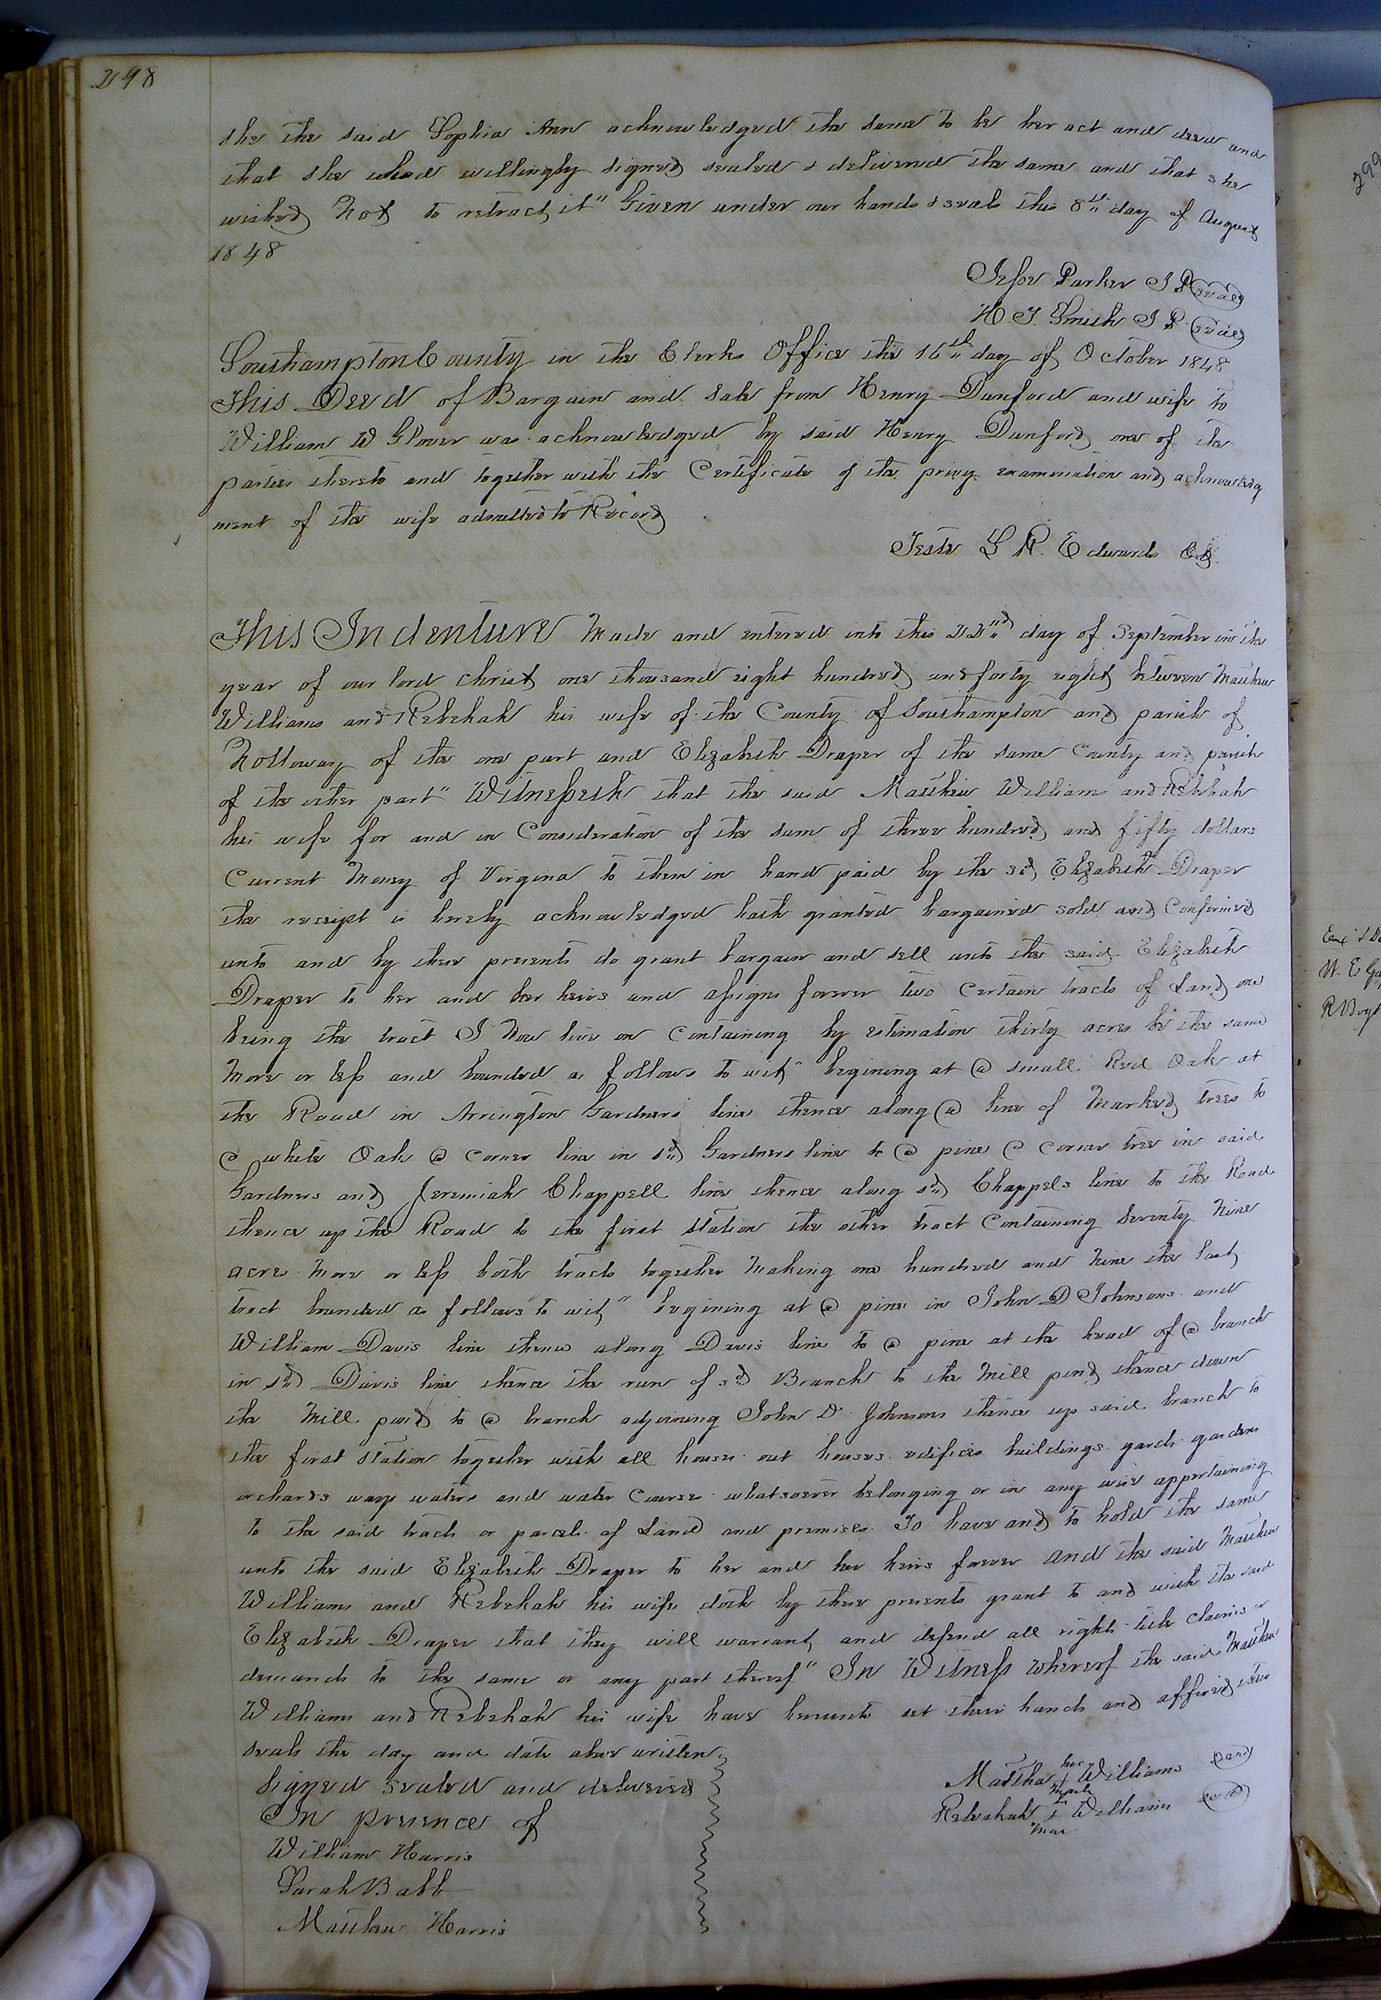 298
she the said Sophia Ann acknowledged the same to be her act and deed and
that she had willingly signed sealed & delivered the same and that she
wished Not to retract it" Given under our hands & seals this 8th day of August
1848
Jesse Parker J P (seal)
H J. Smith J P (seal)
Southampton County in the Clerks Office the 16th day of October 1848
This Deed of Bargain and Sale from Henry Dunford and wife to
William W Glover was acknowledged by said Henry Dunford one of the
parties thereto and together with the Certificate of the privy examination and acknowledg
ment of the wife admitted to Record
Teste L R. Edwards Clk
This Indenture Made and entered into this 22nd day of September in the
year of our lord Christ one thousand eight hundred and forty eight between Matthew
Williams and Rebekah his wife of the County of Southampton and parish of
Nottoway of the one part and Elizabeth Draper of the same County and parish
of the other part" Witnesseth that the said Matthew Williams and Rebekah
his wife for and in Consideration of the sum of three hundred and fifty dollars
Current Money of Virgina to them in hand paid by the sd Elizabeth Draper
the receipt is hereby acknowledged hath granted bargained sold and Confirmed
unto and by these presents do grant bargain and sell unto the said Elizabeth
Draper to her and her heirs and assigns forever two Certain tracts of Land one
being the tract I Now live on Containing by estimation thirty acres be the same
More or less and bounded as follows to wit" begining at @ small Red Oak at
the Road in Arrington Gardners line thence along @ line of Marked trees to
@ white Oak @ corner line in sd Gardners line to @ pine @ corner tree in said
Gardners and Jeremiah Chappell line thence along sd Chappels line to the Road
thence up the Road to the first Station the other tract Containing Seventy Nine
acre More or less both tracts together Making one hundred and Nine the last
tract bounded as follows "to wit" begining at @ pine in John D Johnsons and
William Davis line thence along Davis line to @ pine at the head of @ branch
in sd Davis line thence the run of sd Branch to the Mill pond thence down
the Mill pond to @ branch adjoining John D Johnsons thence up said branch to
the first station together with all houses out houses edifices buildings yards gardens
orchards ways waters and water Courses whatsoever belonging or in any wise appertaining
to the said tracts or parcels of Land and premises To have and to hold the same
unto the said Elizabeth Draper to her and her heirs forever and the said Matthew
Williams and Rebekah his wife doth by these presents grant to and with the said
Elizabeth Draper that they will warrant and defend all right title claims or
demands to the same or any part thereof" In Witness whereof the said Matthew
Williams and Rebekah his wife have hereunto set their hands and affixed their
seals the day and date above written
Signed sealed and delivered
In presence of
William Harris
Sarah Babb
Matthew Harris
Matthew his + mark Williams (seal)
Rebekah + mar Williams (seal)
299